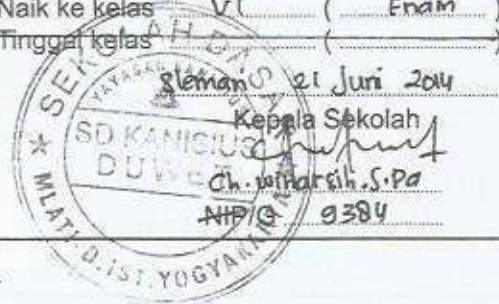 Naik ke kelas VI ( Enam )
Tinggal kelas (
Sleman 21 Juni 2014
Kepala Sekolah
Ch. Winarsih.S.Pd
NIP/G 9384
SEKOLAH DASAR
SD KANISIUS
DUWET
MLATI.D.IST.YOGYAKARTA